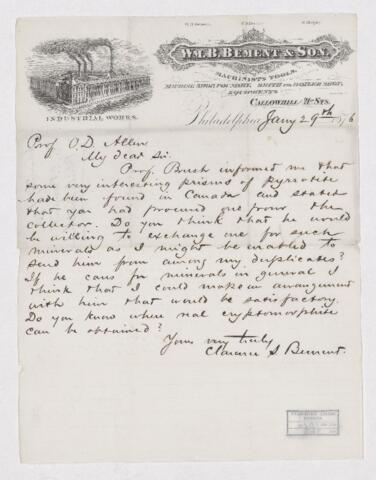 WM. B. BEMENT & SON,
MACHINISTS TOOLS,
MACHINE SHOP, FOUNDRY, SMITH AND BOILER SHOP,
EQUIPMENTS
CALLOWHILL &
STS.
INDUSTRIAL WORKS.
Philadelphia, Jany 29th 1876
Prof O. D. Allen
My dear Sir.
Prof. Brush informed me that
some very interesting prisms of pyroxite
had been found in Canada and stated
that you had procured one from the
collector. Do you think that he would
be willing to exchange one for such
minerals as I might be enabled to
send him from among my duplicates?
If he cares for minerals in general I
think that I could make an arrangement
with him that would be satisfactory.
Do you know where real cryptomorphite
can be obtained?
Yours very truly
Clarence S. Bement.